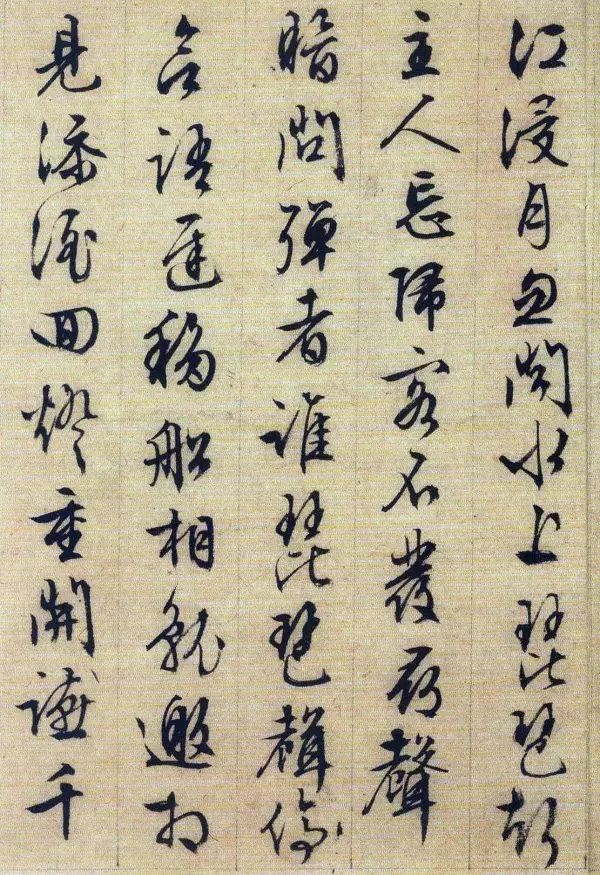 江浸月忽聞水上琵琶聲
主人忘歸客不發尋聲
暗問彈者誰琵琶聲停
欲語遲移船相就邀相
見添酒回燈重開讌千